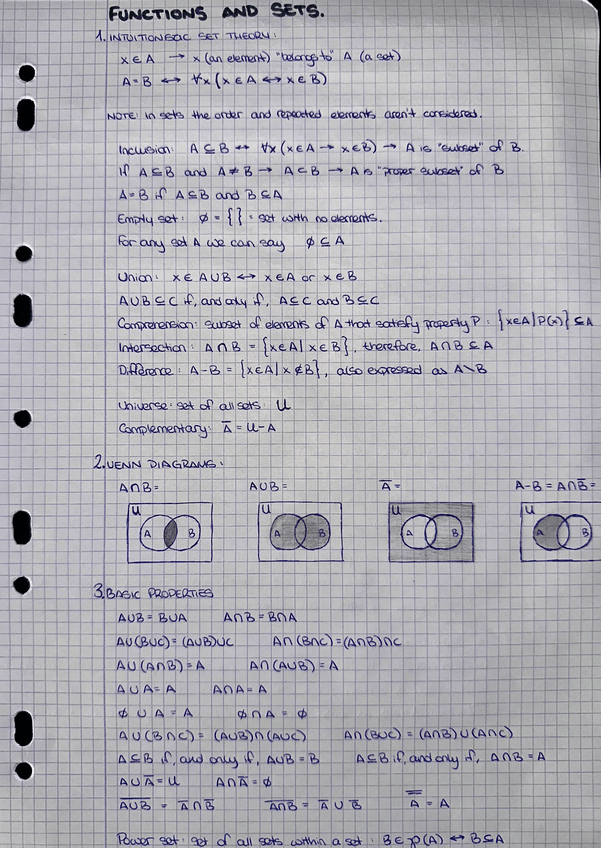 FUNCTIONS AND SETS.
1. INTUITIONISTIC SET THEORY:
x ∈ A → x (an element) "belongs to" A (a set)
A = B ↔ ∀x (x ∈ A ↔ x ∈ B)
NOTE: in sets the order and repeated elements aren't considered.
Inclusion: A ⊆ B ↔ ∀x (x ∈ A → x ∈ B) → A is "subset" of B.
If A ⊆ B and A ≠ B → A ⊂ B → A is "proper subset" of B
A = B if A ⊆ B and B ⊆ A
Empty set: ∅ = { } = set with no elements.
For any set A we can say ∅ ⊆ A
Union: x ∈ A ∪ B ↔ x ∈ A or x ∈ B
A ∪ B ⊆ C if, and only if, A ⊆ C and B ⊆ C
Comprehension: subset of elements of A that satisfy property P: {x ∈ A | P(x)} ⊆ A
Intersection: A ∩ B = {x ∈ A | x ∈ B}, therefore, A ∩ B ⊆ A
Difference: A - B = {x ∈ A | x ∉ B}, also expressed as A \ B
Universe: set of all sets: U
Complementary: A̅ = U - A
2. VENN DIAGRAMS:
A ∩ B = A ∪ B = A̅ = A - B = A ∩ B̅ =
U U U U
A B A B A B A B
3. BASIC PROPERTIES
A ∪ B = B ∪ A A ∩ B = B ∩ A
A ∪ (B ∪ C) = (A ∪ B) ∪ C A ∩ (B ∩ C) = (A ∩ B) ∩ C
A ∪ (A ∩ B) = A A ∩ (A ∪ B) = A
A ∪ A = A A ∩ A = A
∅ ∪ A = A ∅ ∩ A = ∅
A ∪ (B ∩ C) = (A ∪ B) ∩ (A ∪ C) A ∩ (B ∪ C) = (A ∩ B) ∪ (A ∩ C)
A ⊆ B if, and only if, A ∪ B = B A ⊆ B if, and only if, A ∩ B = A
A ∪ A̅ = U A ∩ A̅ = ∅
A̅ ̅∪̅ ̅B̅ = A̅ ∩ B̅ A̅ ̅∩̅ ̅B̅ = A̅ ∪ B̅ A̿ = A
Power set: set of all sets within a set: B ∈ ℘(A) ↔ B ⊆ A